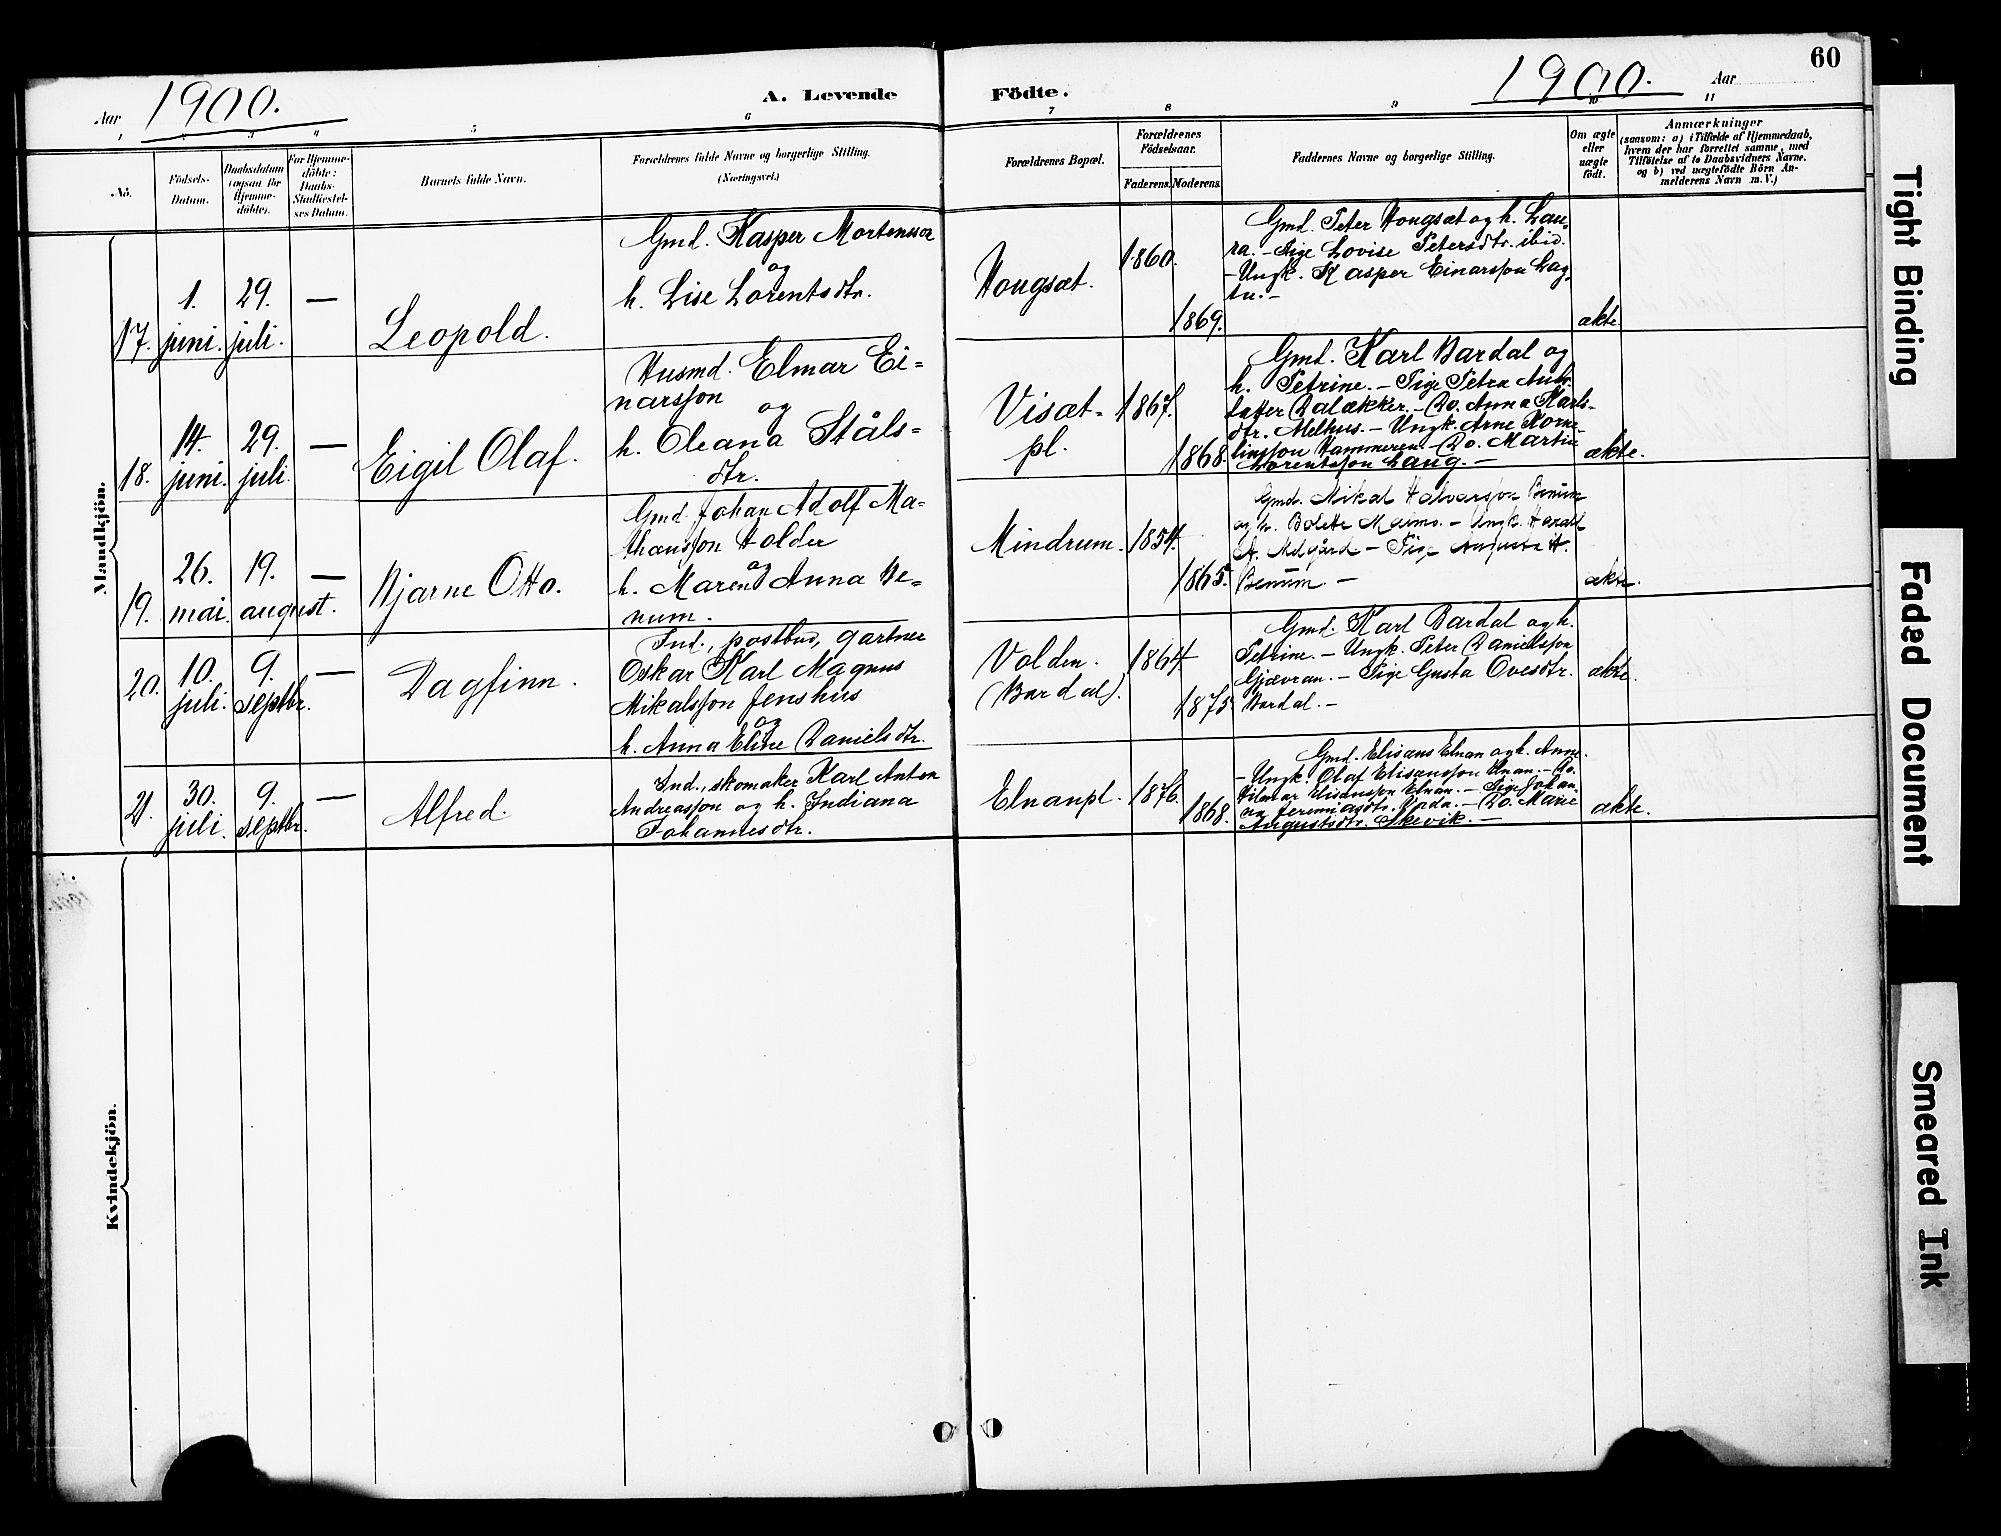 60
Aar 1900.
A. Levende
Födte.
1900. Aar
1 2 3 4 5 6 7 8 9 10 11
No.
Födsels-
Datum.
Daabsdatum
(ogsaa for
Hjemme-
döbte).
For Hjemme-
döbte:
Daabs-
Stadfæstel-
ses Datum.
Barnets fulde Navn.
Forældrenes fulde Navne og borgerlige Stilling.
(Næringsvei.)
Forældrenes Bopæl.
Forældrenes
Födselsaar.
Faderens. Moderens.
Faddernes Navne og borgerlige Stilling.
Om ægte
eller
uægte
födt.
Anmærkninger
(saasom: a) i Tilfælde af Hjemmedaab,
hvem der har forrettet samme, med
Tilföielse af to Daabsvidners Navne.
og b) ved uægtefödte Börn An-
melderens Navn m. V.)
Mandkjön.
17.
1.
juni.
29.
juli.
—
Leopold.
Gmd. Kasper Mortensson
og
h. Lise Lorentsdtr.
Hougsæt.
1860.
1869.
Gmd. Peter Hougsæt og h. Lau-
ra. — Pige Lovise Petersdtr. ibid.
— Ungk. Kasper Einarsson Lag-
tu. —
ækte
18.
14.
juni.
29.
juli.
—
Eigil Olaf.
Husmd. Elmar Ei-
narsson og
h. Oleana Ståls-
dtr.
Visæt-
pl.
1867.
1868.
Gmd. Karl Bardal og
h. Petrine. — Pige Petra
Dalækker. — Do. Anna Karls-
dtr. Melhus. — Ungk. Arne Korne-
liusson Hammeren. — Do. Martin
Lorentsson Laug. —
ækte.
19.
26.
mai.
19.
august.
—
Bjarne Otto.
Gmd. Johan Adolf Ma-
thæusson Holder
og
h. Maren Anna Be-
num.
Mindrum.
1854.
1865.
Gmd. Mikal Halvorsson Benum
og h. Bolette Malmo. — Ungk. Harald
A. Melgård — Pige Augusta H.
Benum. —
ækte.
20.
10.
juli.
9.
septbr.
—
Dagfinn.
Ind., postbud, gartner
Oskar Karl Magnus
Mikalsson Jenshus
og
h. Anna Eline Danielsdtr.
Volden.
(Bardal).
1864
1875
Gmd. Karl Bardal og h.
Petrine. — Ungk. Peter Danielsson
Gjævran. — Pige Gusta Ovesdtr.
Bardal. —
ækte.
21.
30.
juli.
9.
septbr.
—
Alfred.
Ind., skomaker Karl Anton
Andreasson og h. Indiana
Johannesdtr.
Elnanpl.
1876.
1868.
Gmd. Elisæus Elnan og h. Anne.
— Ungk. Olaf Elisæusson Elnan. — Do.
Hilmar Elisæusson Elnan. — Pige Johan-
na Jeremiasdtr. — Do. Marie
Augustsdtr. Skevik. —
ækte.
Kvindekjön.
Tight Binding
Faded Document
Smeared Ink